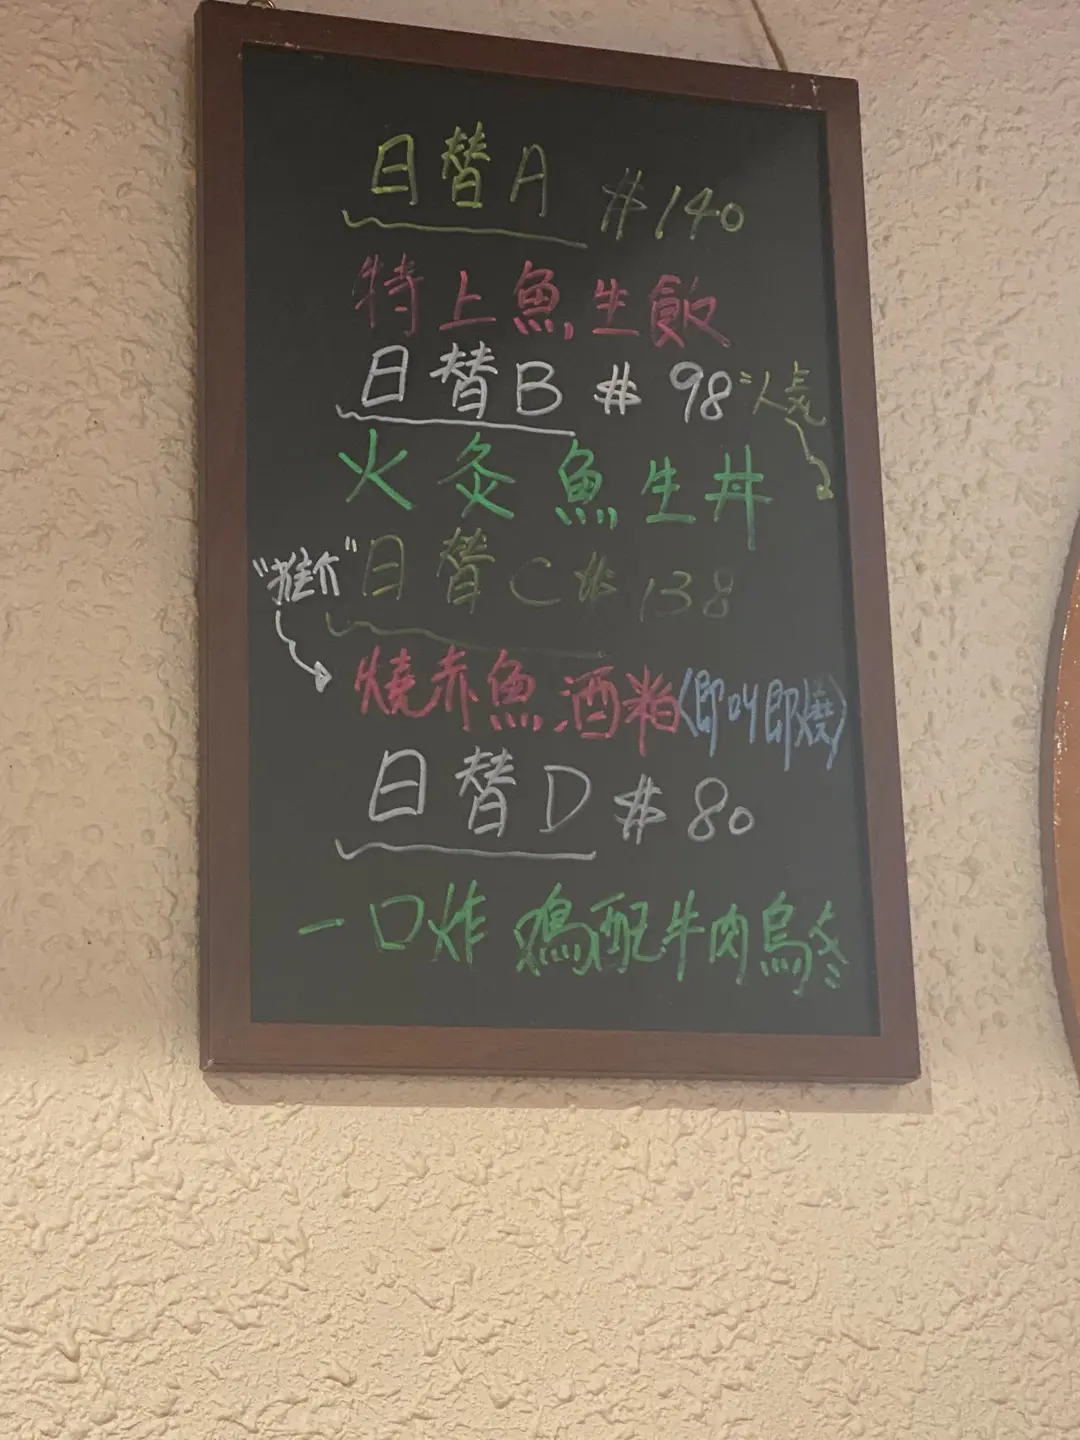 日替A #140
特上魚生飯
日替B # 98 "人気
火炙魚生丼
"推介" 日替C # 138
燒赤魚酒粕(即叫即燒)
日替D # 80
一口炸鷄配牛肉烏冬